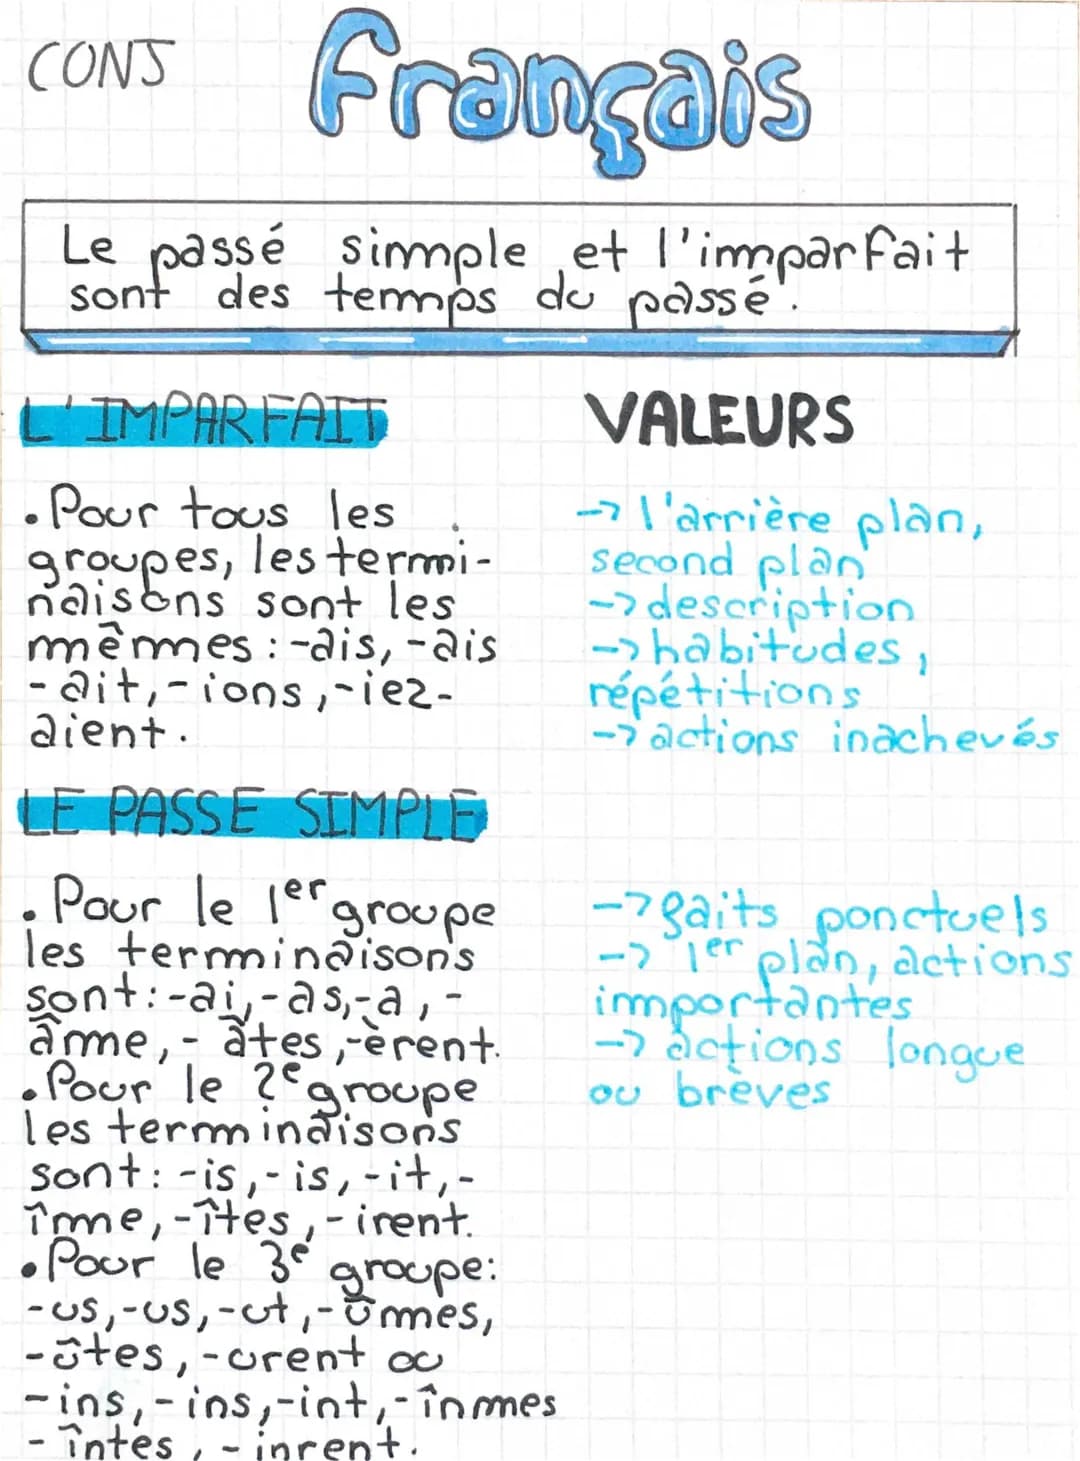 CONJ
Français
Le passé simple et l'imparfait
sont des temps du passé.
L'IMPARFAIT
VALEURS
• Pour tous les
groupes, les termi-
naisons sont les
mêmes : -ais, -ais
- ait, - ions, -iez-
aient.
-> l'arrière plan,
second plan
-> description
-> habitudes,
répétitions
-> actions inachevés
LE PASSE SIMPLE
• Pour le 1er groupe
les terminaisons
sont : -ai, - as, -a, -
âme, - âtes, -èrent.
• Pour le 2e groupe
les terminaisons
sont : -is, - is, -it, -
îme, -îtes, - irent.
• Pour le 3e groupe :
-us, -us, -ut, - ûmes,
-ûtes, -urent ou
-ins, - ins, -int, - înmes
- întes, - inrent.
-> faits ponctuels
-> 1er plan, actions
importantes
-> actions longue
ou brèves